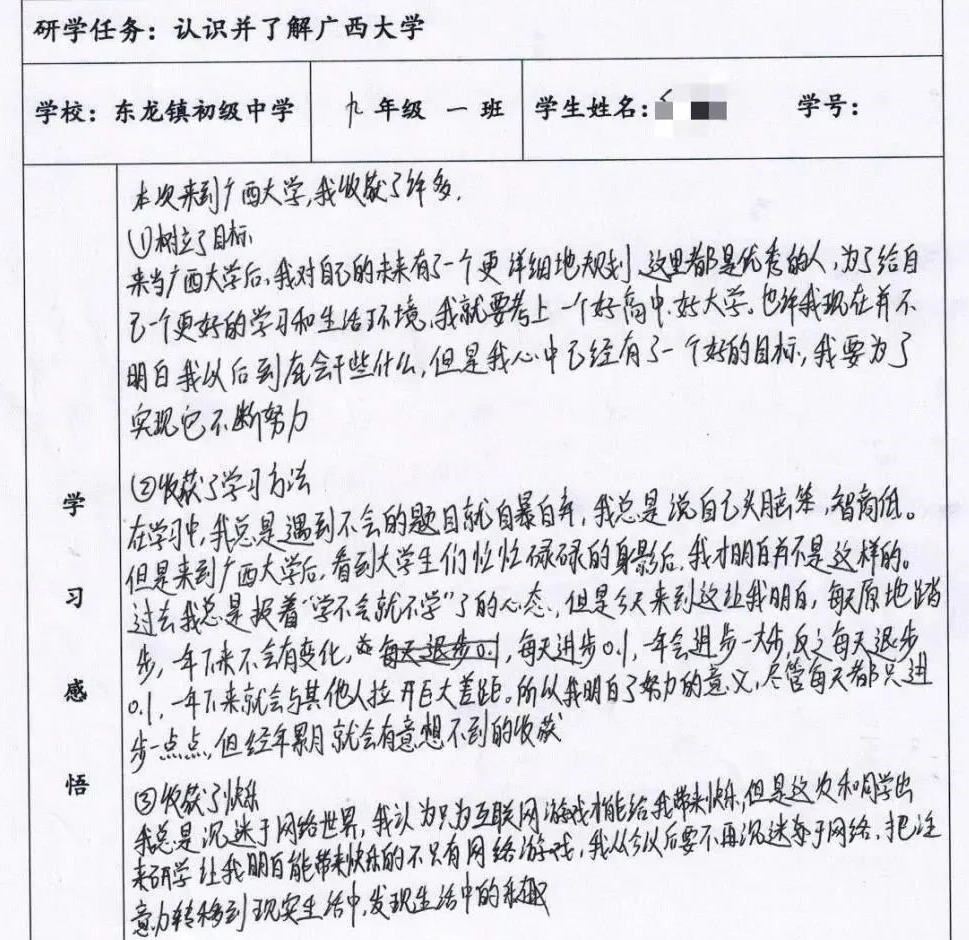 研学任务：认识并了解广西大学
学校：东龙镇初级中学 九年级 一班 学生姓名： 学号：
学习感悟
本次来到广西大学,我收获了许多.
(1)树立了目标
来当广西大学后,我对自己的未来有了一个更详细地规划,这里都是优秀的人,为了给自
己一个更好的学习和生活环境,我就要考上一个好高中.好大学。也许我现在并不
明白我以后到底会干些什么,但是我心中已经有了一个好的目标,我要为了
实现它不断努力
②收获了学习方法
在学习中,我总是遇到不会的题目就自暴自弃,我总是说自己头脑笨,智商低。
但是来到广西大学后,看到大学生们忙忙碌碌的身影后,我才明白并不是这样的。
过去我总是报着“学不会就不学”了的心态,但是今天来到这让我明白,每天原地踏
步,一年下来不会有变化,每天退步0.1,每天进步0.1,一年会进步一大步,反之每天退步
0.1,一年下来就会与其他人拉开巨大差距。所以我明白了努力的意义,尽管每天都只进
步一点点,但经年累月就会有意想不到的收获
③收获了快乐
我总是沉迷于网络世界,我认为只为互联网游戏才能给我带来快乐,但是这次和同学出
来研学让我明白能带来快乐的不只有网络游戏,我从今以后要不再沉迷于网络,把注
意力转移到现实生活中,发现生活中的乐趣